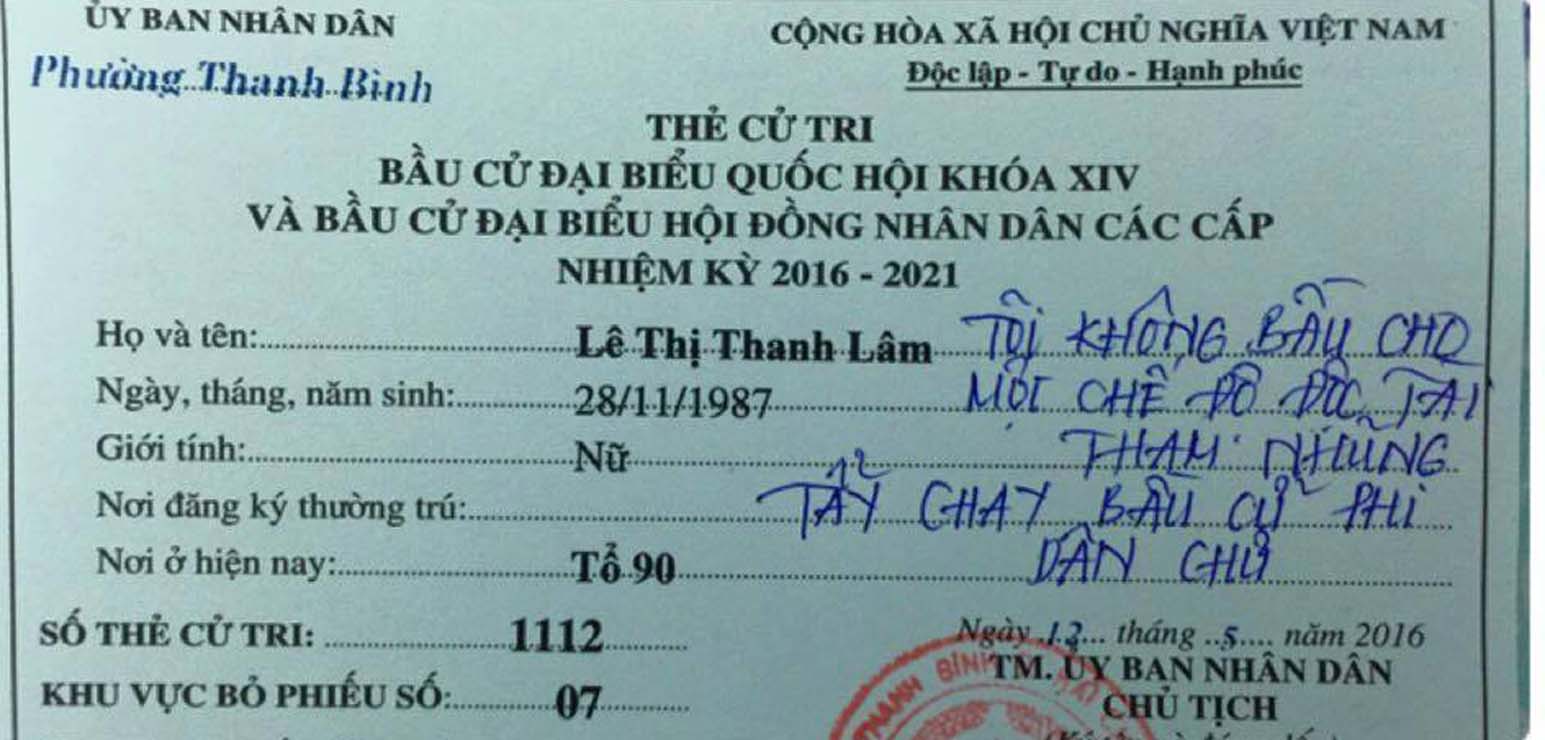 ỦY BAN NHÂN DÂN
Phường Thanh Bình
CỘNG HÒA XÃ HỘI CHỦ NGHĨA VIỆT NAM
Độc lập - Tự do - Hạnh phúc
THẺ CỬ TRI
BẦU CỬ ĐẠI BIỂU QUỐC HỘI KHÓA XIV
VÀ BẦU CỬ ĐẠI BIỂU HỘI ĐỒNG NHÂN DÂN CÁC CẤP
NHIỆM KỲ 2016 - 2021
Họ và tên: Lê Thị Thanh Lâm TÔI KHÔNG BẦU CHO
Ngày, tháng, năm sinh: 28/11/1987 MỘT CHẾ ĐỘ ĐỘC TÀI
Giới tính: Nữ THAM NHŨNG
Nơi đăng ký thường trú: TẨY CHAY BẦU CỬ PHI
Nơi ở hiện nay: Tổ 90 DÂN CHỦ
SỐ THẺ CỬ TRI: 1112
KHU VỰC BỎ PHIẾU SỐ: 07
Ngày 12 tháng 5 năm 2016
TM. ỦY BAN NHÂN DÂN
CHỦ TỊCH
THANH BÌNH